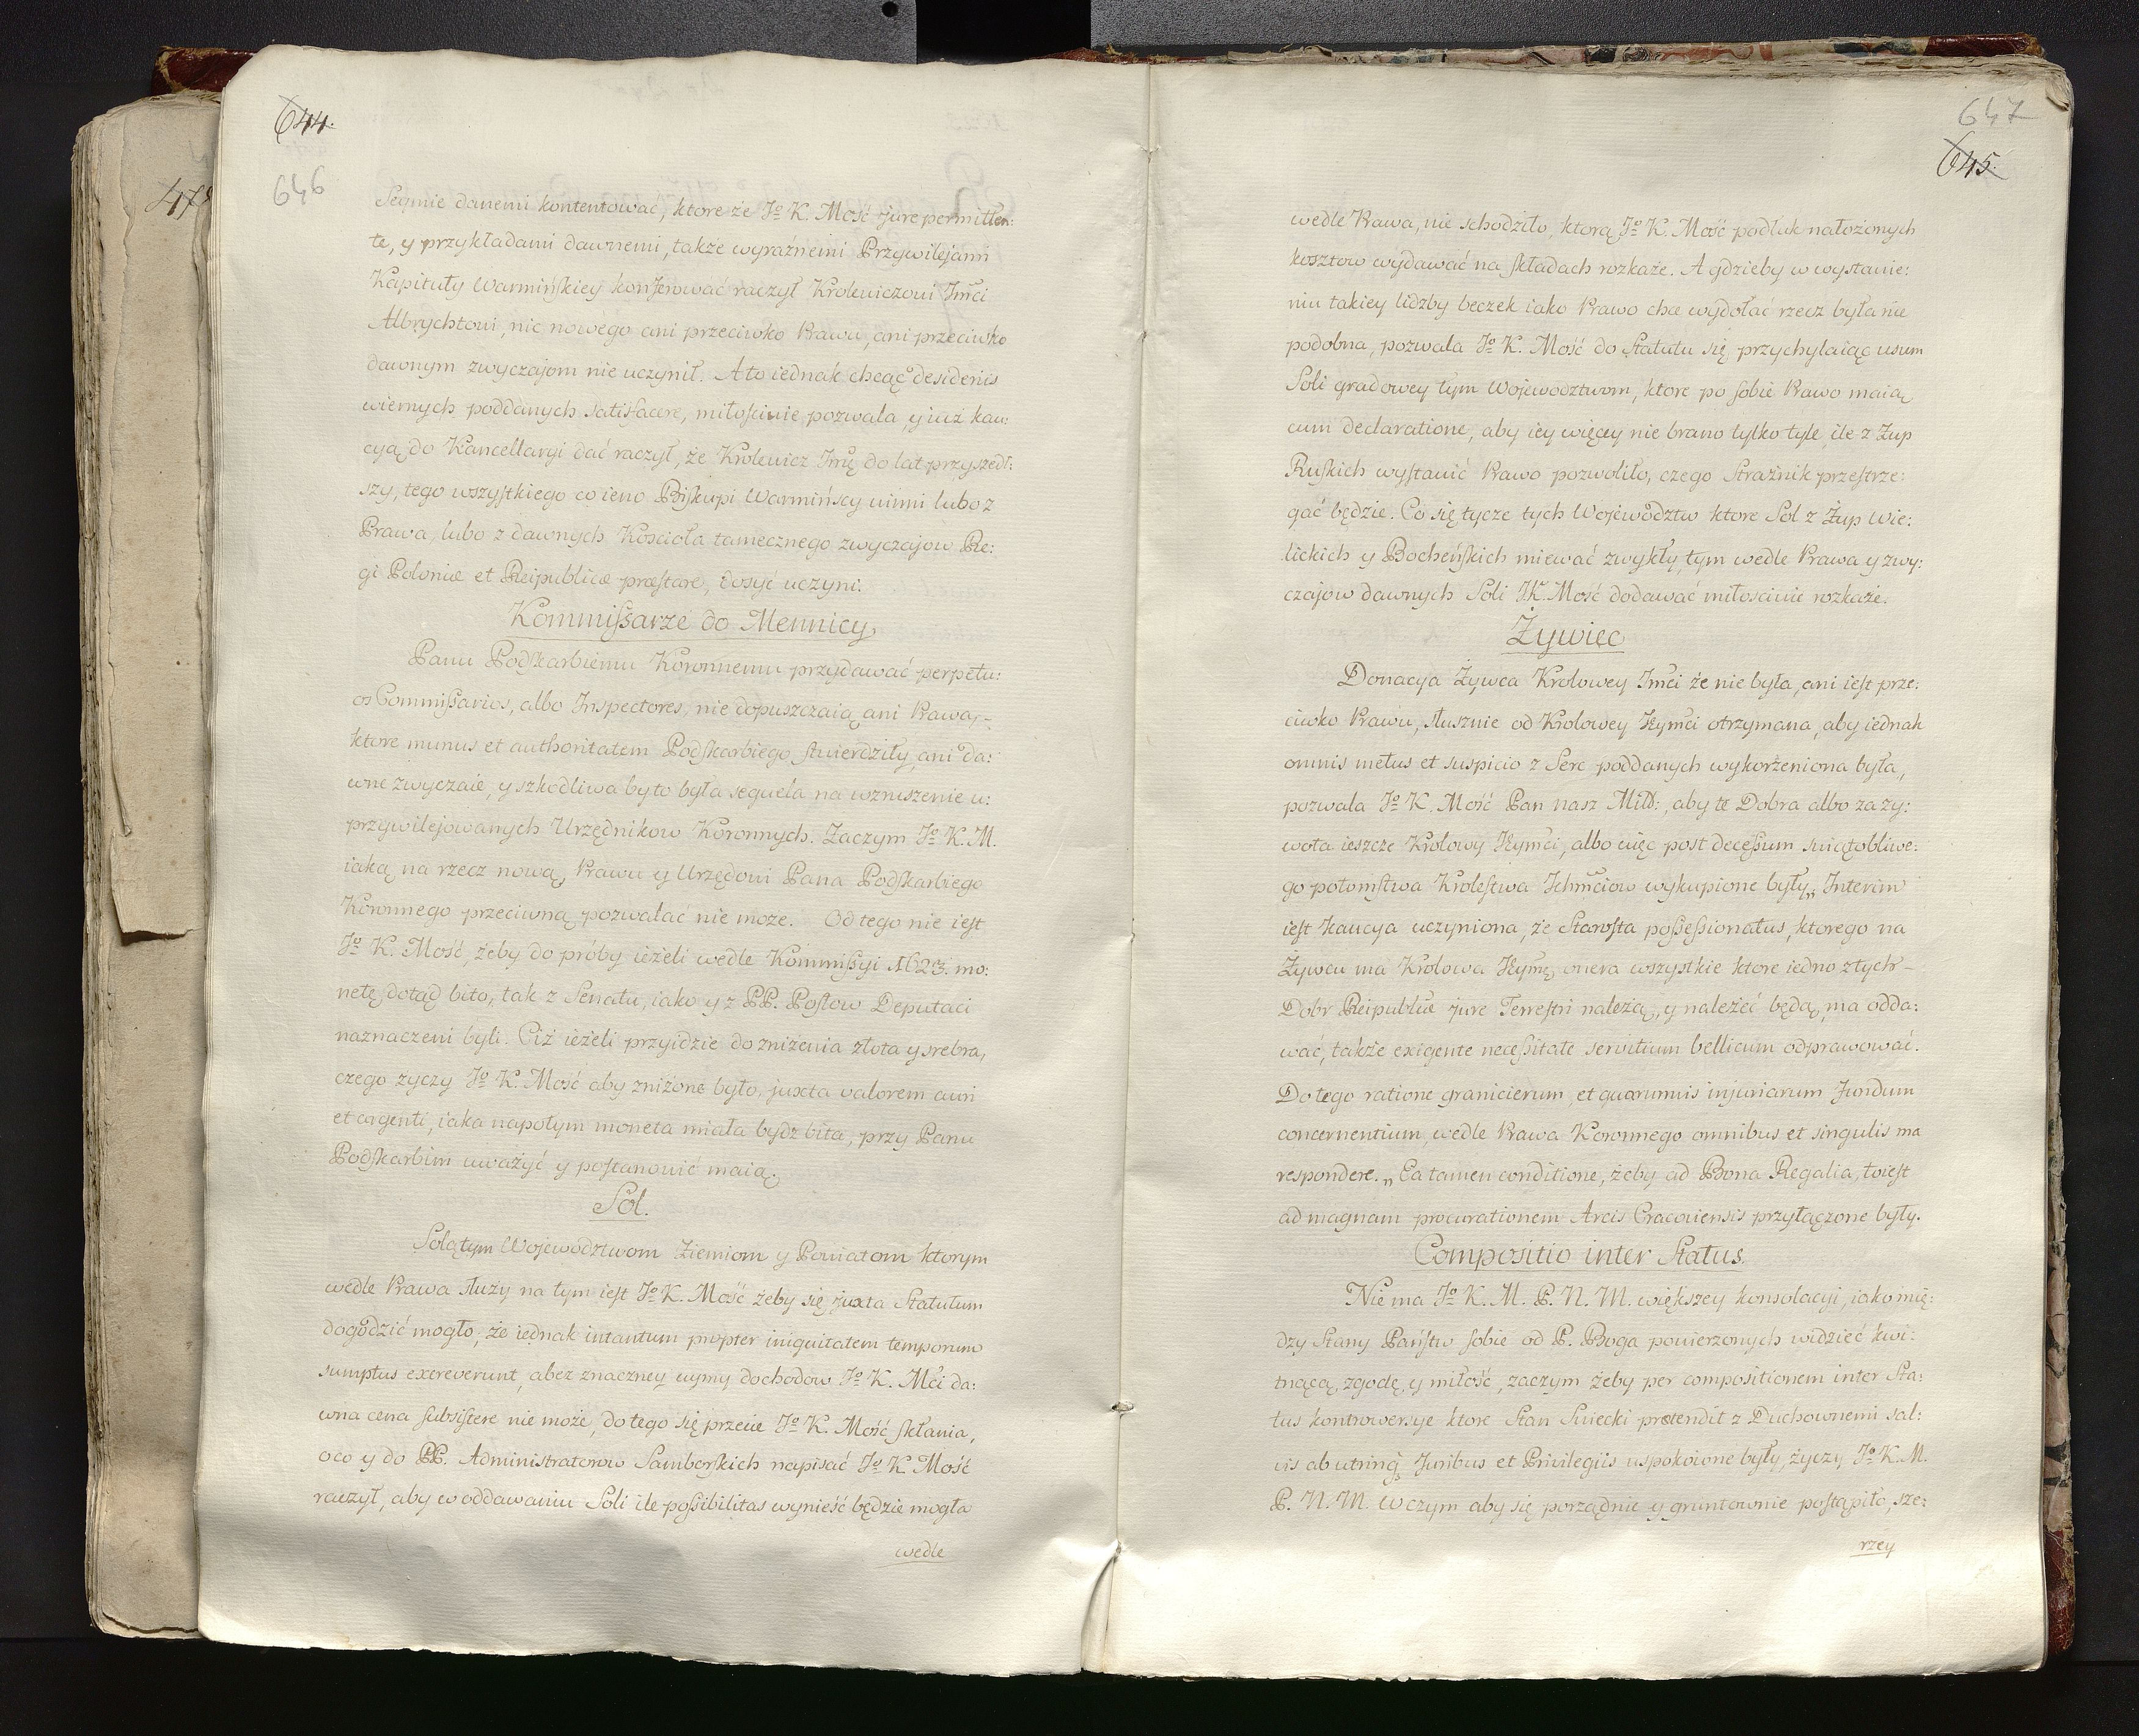 644.
646
Seymie danemi kontentować, ktore że Jº K. Mość jure permitten:
te, y przykładami dawnemi, także wyraźnemi Przywilejami
Kapituły Warmińskiey konferować raczył Krolewiczowi Jmći
Albrychtowi, nic nowego ani przeciwko Prawu, ani przeciwko
dawnym zwyczajom nie uczynił. A to iednak chcąc desideriis
wiernych poddanych satisfacere, miłościwie pozwala, y iuż kau:
cyą do Kancellaryi dać raczył, że Krolewicz Jmć do lat przyszedł:
szy, tego wszystkiego co ieno Biskupi Warmińscy winni lubo z
Prawa, lubo z dawnych Kościoła tamecznego zwyczajow Re:
gi Poloniæ et Reipublicæ præstare, dosyć uczyni.
Kommissarze do Mennicy
Panu Podskarbiemu Koronnemu przydawać perpetu:
os Commissarios, albo Inspectores, nie dopuszczaią ani Prawa,
ktore munus et authoritatem Podskarbiego stwierdziły, ani da:
wne zwyczaie, y szkodliwa by to była sequela na wzruszenie u:
przywilejowanych Urzędnikow Koronnych. Zaczym Jº K. M.
iaką na rzecz nową, Prawu y Urzędowi Pana Podskarbiego
Koronnego przeciwną pozwalać nie może. Od tego nie iest
Jº K. Mość, żeby do próby ieżeli wedle Kommissyi 1623. mo:
netę dotąd bito, tak z Senatu, iako y z PP. Posłow Deputaci
naznaczeni byli. Ciż ieżeli przyidzie do zniżenia złota y srebra,
czego życzy Jº K. Mość aby zniżone było, juxta valorem auri
et argenti, iaka napotym moneta miała bydz bita, przy Panu
Podskarbim uważyć y postanowić maią.
Sol.
Solą tym Wojewodztwom Ziemiom y Powiatom ktorym
wedle Prawa służy na tym iest Jº K. Mość żeby się juxta Statutum
dogodzić mogło, że iednak intantum propter iniquitatem temporum
sumptus excreverunt, a bez znaczney uymy dochodow Jº K. Mći da:
wna cena subsistere nie może, do tego się przecie Jº K. Mość skłania,
o co y do PP. Administratorow Samborskich napisać Jº K Mość
raczył, aby w oddawaniu Soli ile possibilitas wynieść będzie mogła
wedle
647
645.
wedle Prawa, nie schodziło, ktorą Jº K. Mość podług nałożonych
kosztow wydawać na składach rozkaże. A gdzieby w wystawie:
niu takiey lidzby beczek iako Prawo chce wydołać rzecz była nie
podobna, pozwala Jº K. Mość do Statutu się przychylaiąc usum
Soli gradowey tym Wojewodztwom, ktore po sobie Prawo maią
cum declaratione, aby iey więcey nie brano tylko tyle, ile z Zup
Ruskich wystawić Prawo pozwoliło, czego Strażnik przestrze:
gać będzie. Co się tycze tych Wojewodztw ktore Sol z Żup Wie:
lickich y Bocheńskich miewać zwykły, tym wedle Prawa y zwy:
czajow dawnych Soli JK. Mość dodawać miłościwie rozkaże.
Żywiec
Donacya Żywca Krolowey Jmći że nie była, ani iest prze:
ciwko Prawu, słusznie od Krolowey Jeymći otrzymana, aby iednak
omnis metus et suspicio z Serc poddanych wykorzeniona była,
pozwala Jº K. Mość Pan nasz Miłł:, aby te Dobra albo za ży:
wota ieszcze Krolowy Jeymći, albo więc post decessum swiątobliwe:
go potomstwa Krolestwa Jchmćiow wykupione były„ Interim
iest kaucya uczyniona, że Starosta possessionatus, ktorego na
Żywcu ma Krolowa Jeymć, onera wszystkie ktore iedno z tych
Dobr Reipublicæ jure Terrestri należą, y należeć będą, ma odda:
wać, także exigente necessitate servitium bellicum odprawować.
Do tego ratione granicierum, et quorumvis injuriarum fundum
concernentium, wedle Prawa Koronnego omnibus et singulis ma
respondere. „Ea tamen conditione, żeby ad Bona Regalia, to iest
ad magnam procurationem Arcis Cracoviensis przyłączone były.
Compositio inter Status.
Nie ma Jº K. M. P. N. M. większey konsolacyi, iako mię:
dzy Stany Państw sobie od P. Boga powierzonych widzieć kwi:
tnącą, zgodę, y miłość, zaczym żeby per compositionem inter Sta:
tus kontrowersye ktore Stan Swiecki prætendit z Duchownemi sal:
vis ab utrinq Juribus et Privilegiis uspokoione były, życzy Jº K. M.
P. N. M. W czym aby się porządnie y gruntownie postąpiło, sze:
rzey